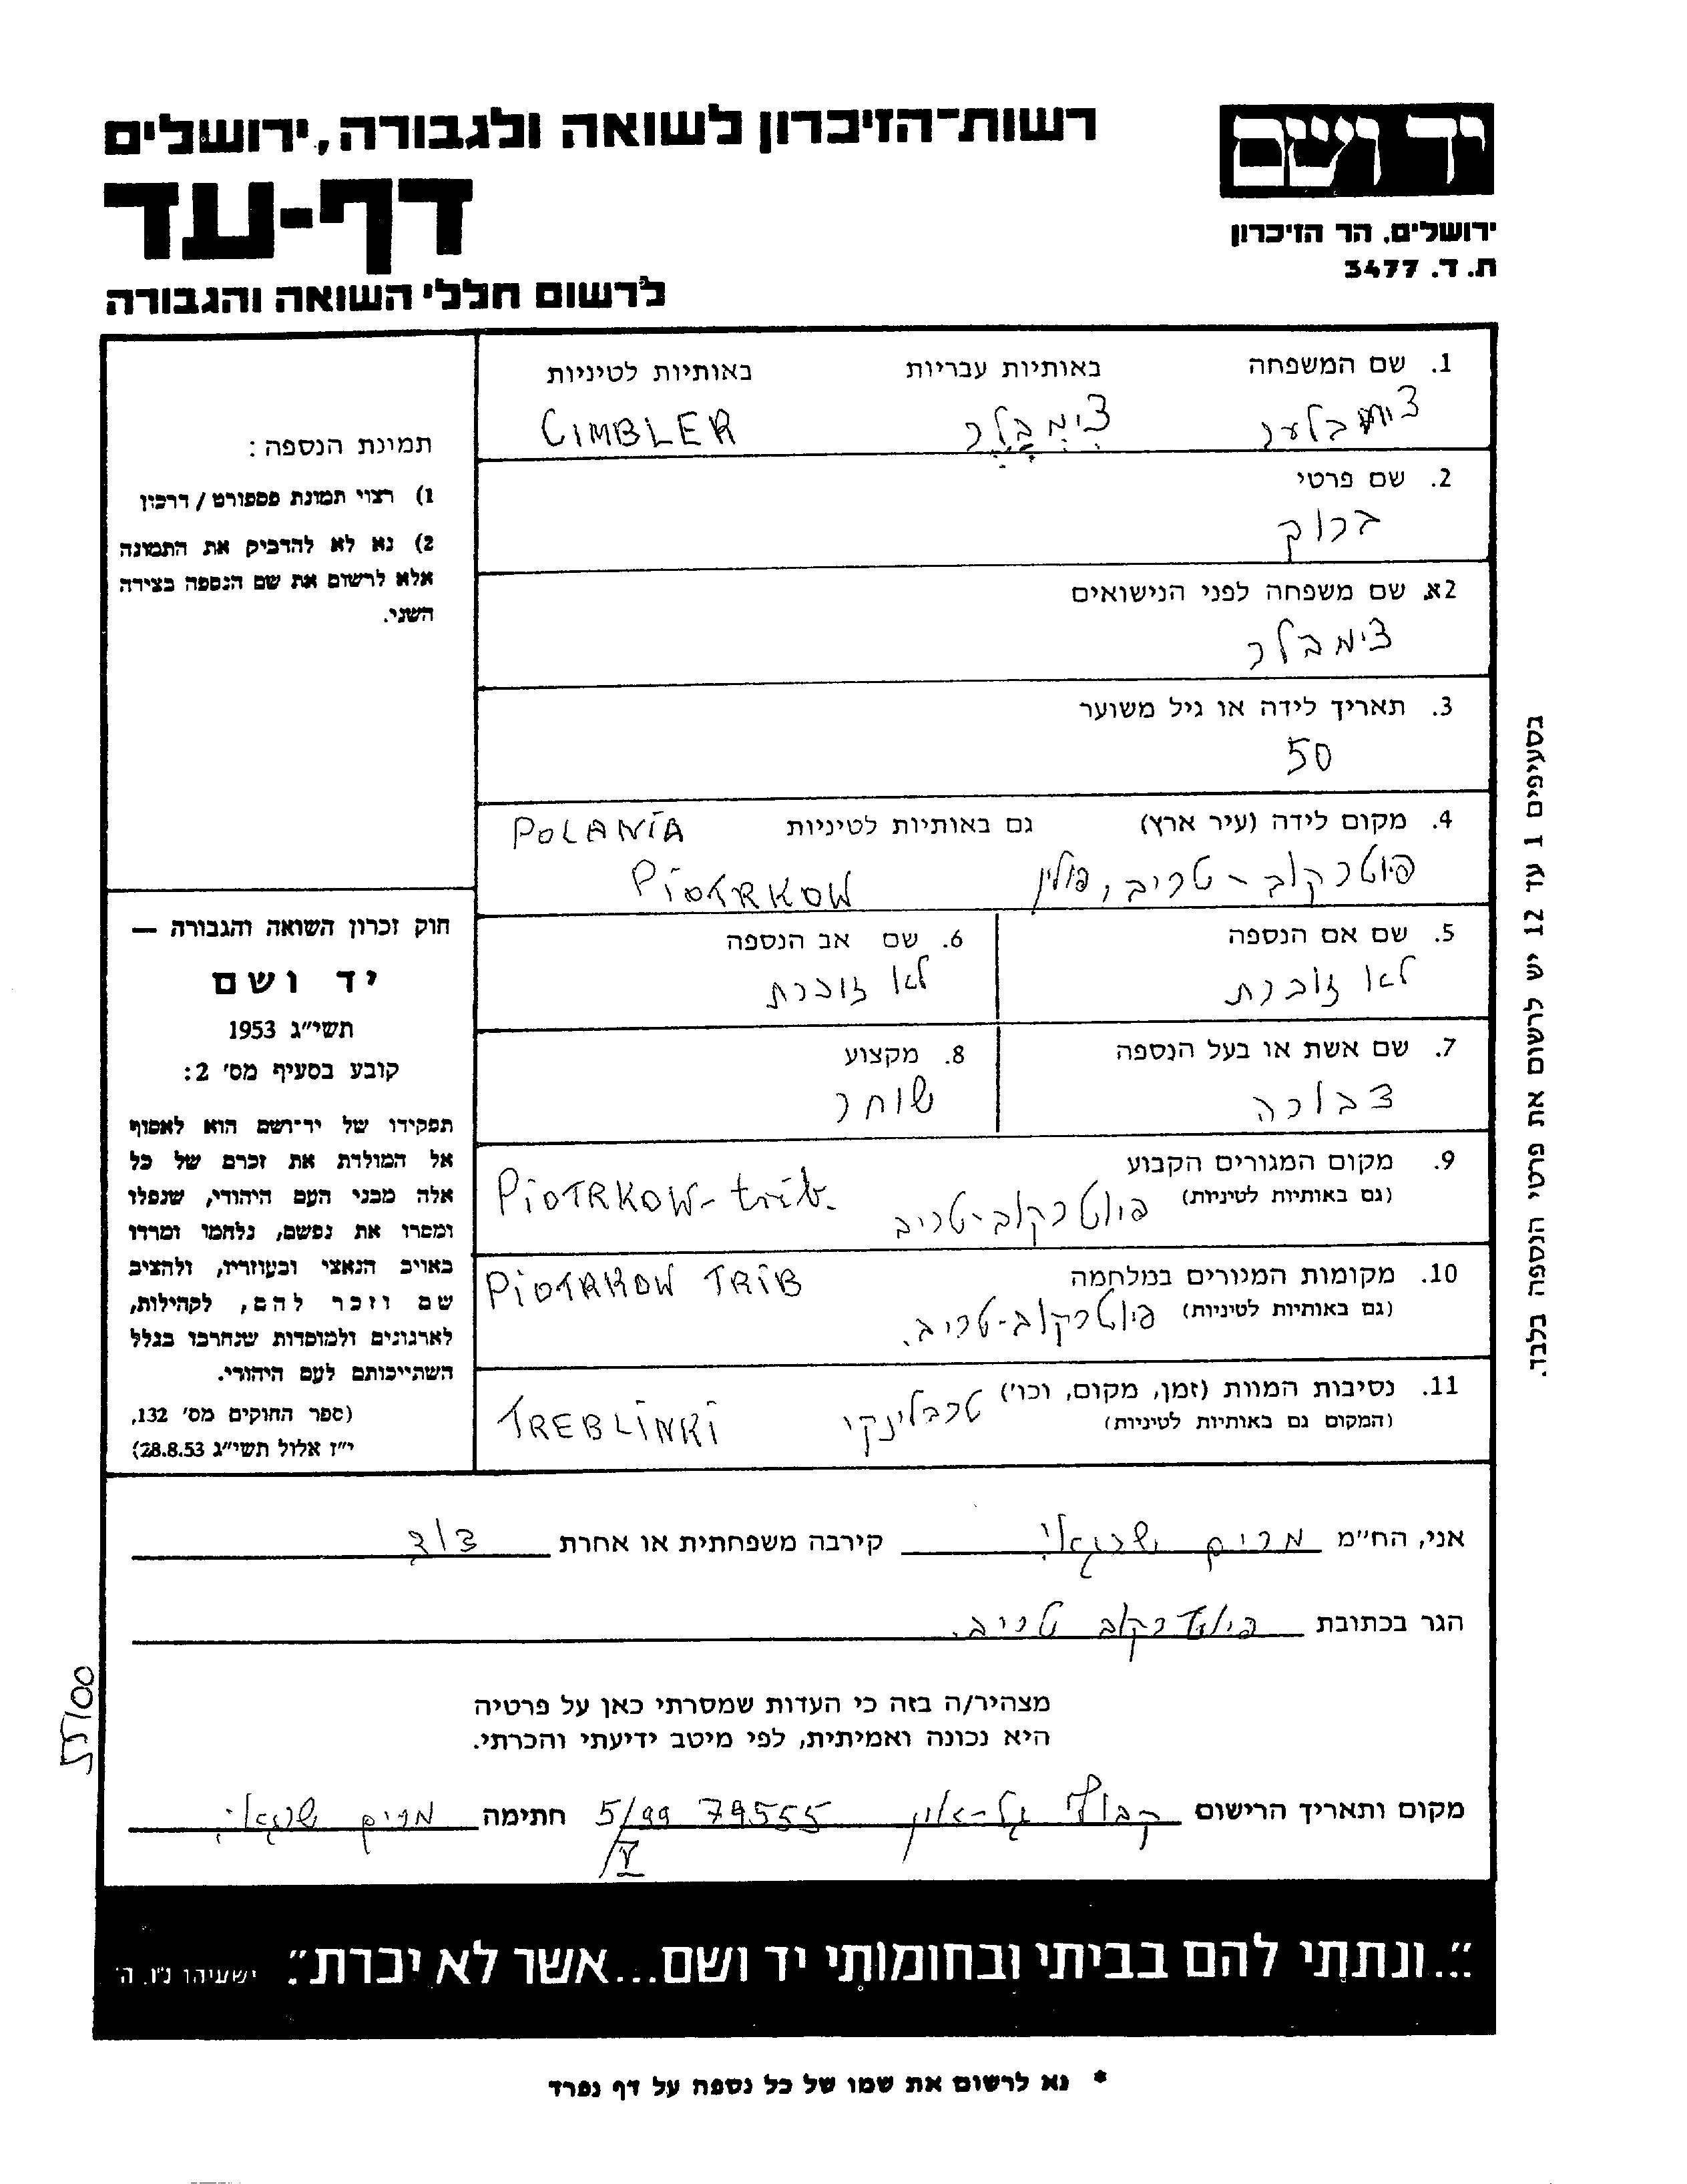 רשות-הזיכרון לשואה ולגבורה, ירושלים
דף-עד
לרשום חללי השואה והגבורה
יד ושם
ירושלים. הר הזיכרון
ת. ד. 3477
1. שם המשפחה באותיות עבריות באותיות לטיניות
צימבלער צימבלר CIMBLER
2. שם פרטי
ברוך
2א. שם משפחה לפני הנישואים
צימבלר
3. תאריך לידה או גיל משוער
50
4. מקום לידה (עיר ארץ) גם באותיות לטיניות POLANIA
פיוטרקוב - טריב, פולין PIOTRKOW
5. שם אם הנספה
לא זוכרת
6. שם אב הנספה
לא זוכרת
7. שם אשת או בעל הנספה
דבורה
8. מקצוע
סוחר
9. מקום המגורים הקבוע
(גם באותיות לטיניות) פיוטרקוב-טריב PIOTRKOW-trib.
10. מקומות המגורים במלחמה PIOTRKOW TRIB
(גם באותיות לטיניות) פיוטרקוב-טריב.
11. נסיבות המוות (זמן, מקום, וכו') טרבלינקי TREBLINKI
(המקום גם באותיות לטיניות)
תמונת הנספה:
1) רצוי תמונת פספורט / דרכון
2) נא לא להדביק את התמונה
אלא לרשום את שם הנספה בצידה
השני.
חוק זכרון השואה והגבורה —
יד ושם
תשי"ג 1953
קובע בסעיף מס' 2:
תפקידו של יד-ושם הוא לאסוף
אל המולדת את זכרם של כל
אלה מבני העם היהודי, שנפלו
ומסרו את נפשם, נלחמו ומרדו
באויב הנאצי ובעוזריו, ולהציב
שם וזכר להם, לקהילות,
לארגונים ולמוסדות שנחרבו בגלל
השתייכותם לעם היהודי.
(ספר החוקים מס' 132,
י"ז אלול תשי"ג 28.8.53)
אני, הח"מ מרים שרגאי קירבה משפחתית או אחרת דוד
הגר בכתובת פיוטרקוב טריב.
מצהיר/ה בזה כי העדות שמסרתי כאן על פרטיה
היא נכונה ואמיתית, לפי מיטב ידיעתי והכרתי.
מקום ותאריך הרישום קבוץ גל-און 79555 5/99 חתימה מרים שרגאי
V
"...ונתתי להם בביתי ובחומותי יד ושם...אשר לא יכרת". ישעיהו נ"ו, ה'
* נא לרשום את שמו של כל נספה על דף נפרד
בסעיפים 1 עד 12 יש לרשום את פרטי הנספה בלבד.